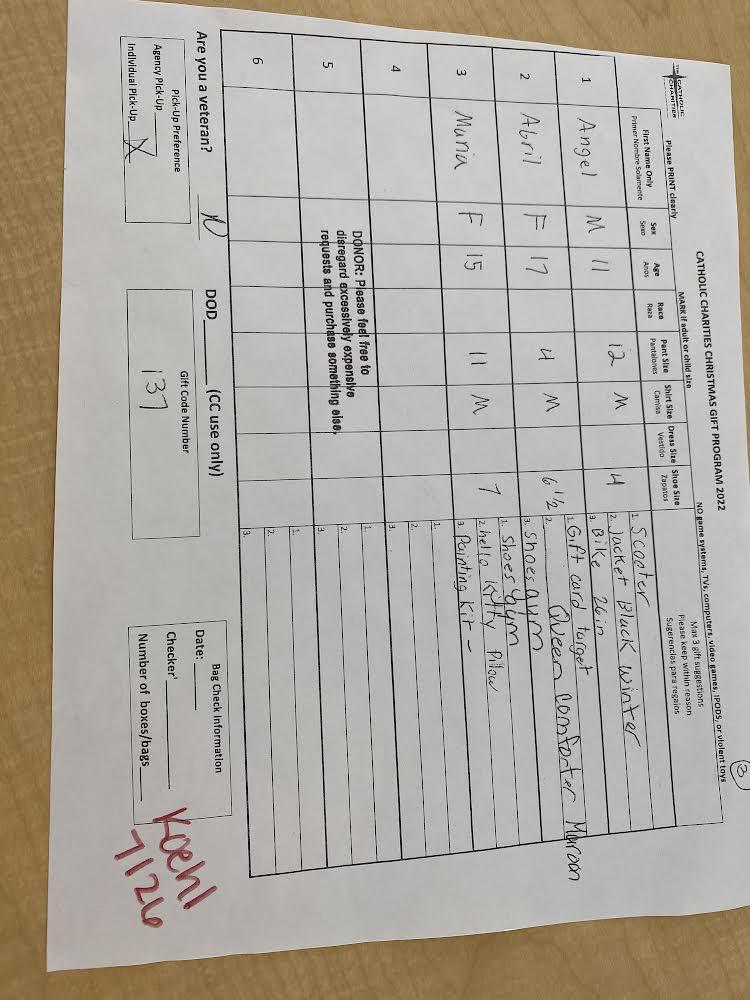 3
THE CATHOLIC CHARITIES
CATHOLIC CHARITIES CHRISTMAS GIFT PROGRAM 2022
Please PRINT clearly
MARK if adult or child size
NO game systems, TVs, computers, video games, IPODS, or violent toys
Max 3 gift suggestions
Please keep within reason
Sugerencias para regalos
First Name Only Sex Age Race Pant Size Shirt Size Dress Size Shoe Size
Primer Nombre Solamente Sexo Anos Raza Pantalones Camisa Vestido Zapatos
1 Angel M 11 12 M 4
1. Scooter
2. Jacket Black Winter
3. Bike 26in
2 Abril F 17 4 M 6 1/2
1. Gift card target
2. Queen comforter Maroon
3. Shoes gym
3 Maria F 15 11 M 7
1. Shoes gym
2. hello Kitty Pillow
3. Painting Kit -
4
1.
2.
3.
5
1.
2.
3.
6
1.
2.
3.
DONOR: Please feel free to
disregard excessively expensive
requests and purchase something else.
Are you a veteran? N DOD____ (CC use only)
Pick-Up Preference
Agency Pick-Up____
Individual Pick-Up X
Gift Code Number
137
Bag Check Information
Date: ____
Checker' ____
Number of boxes/bags____
Koehl
7126